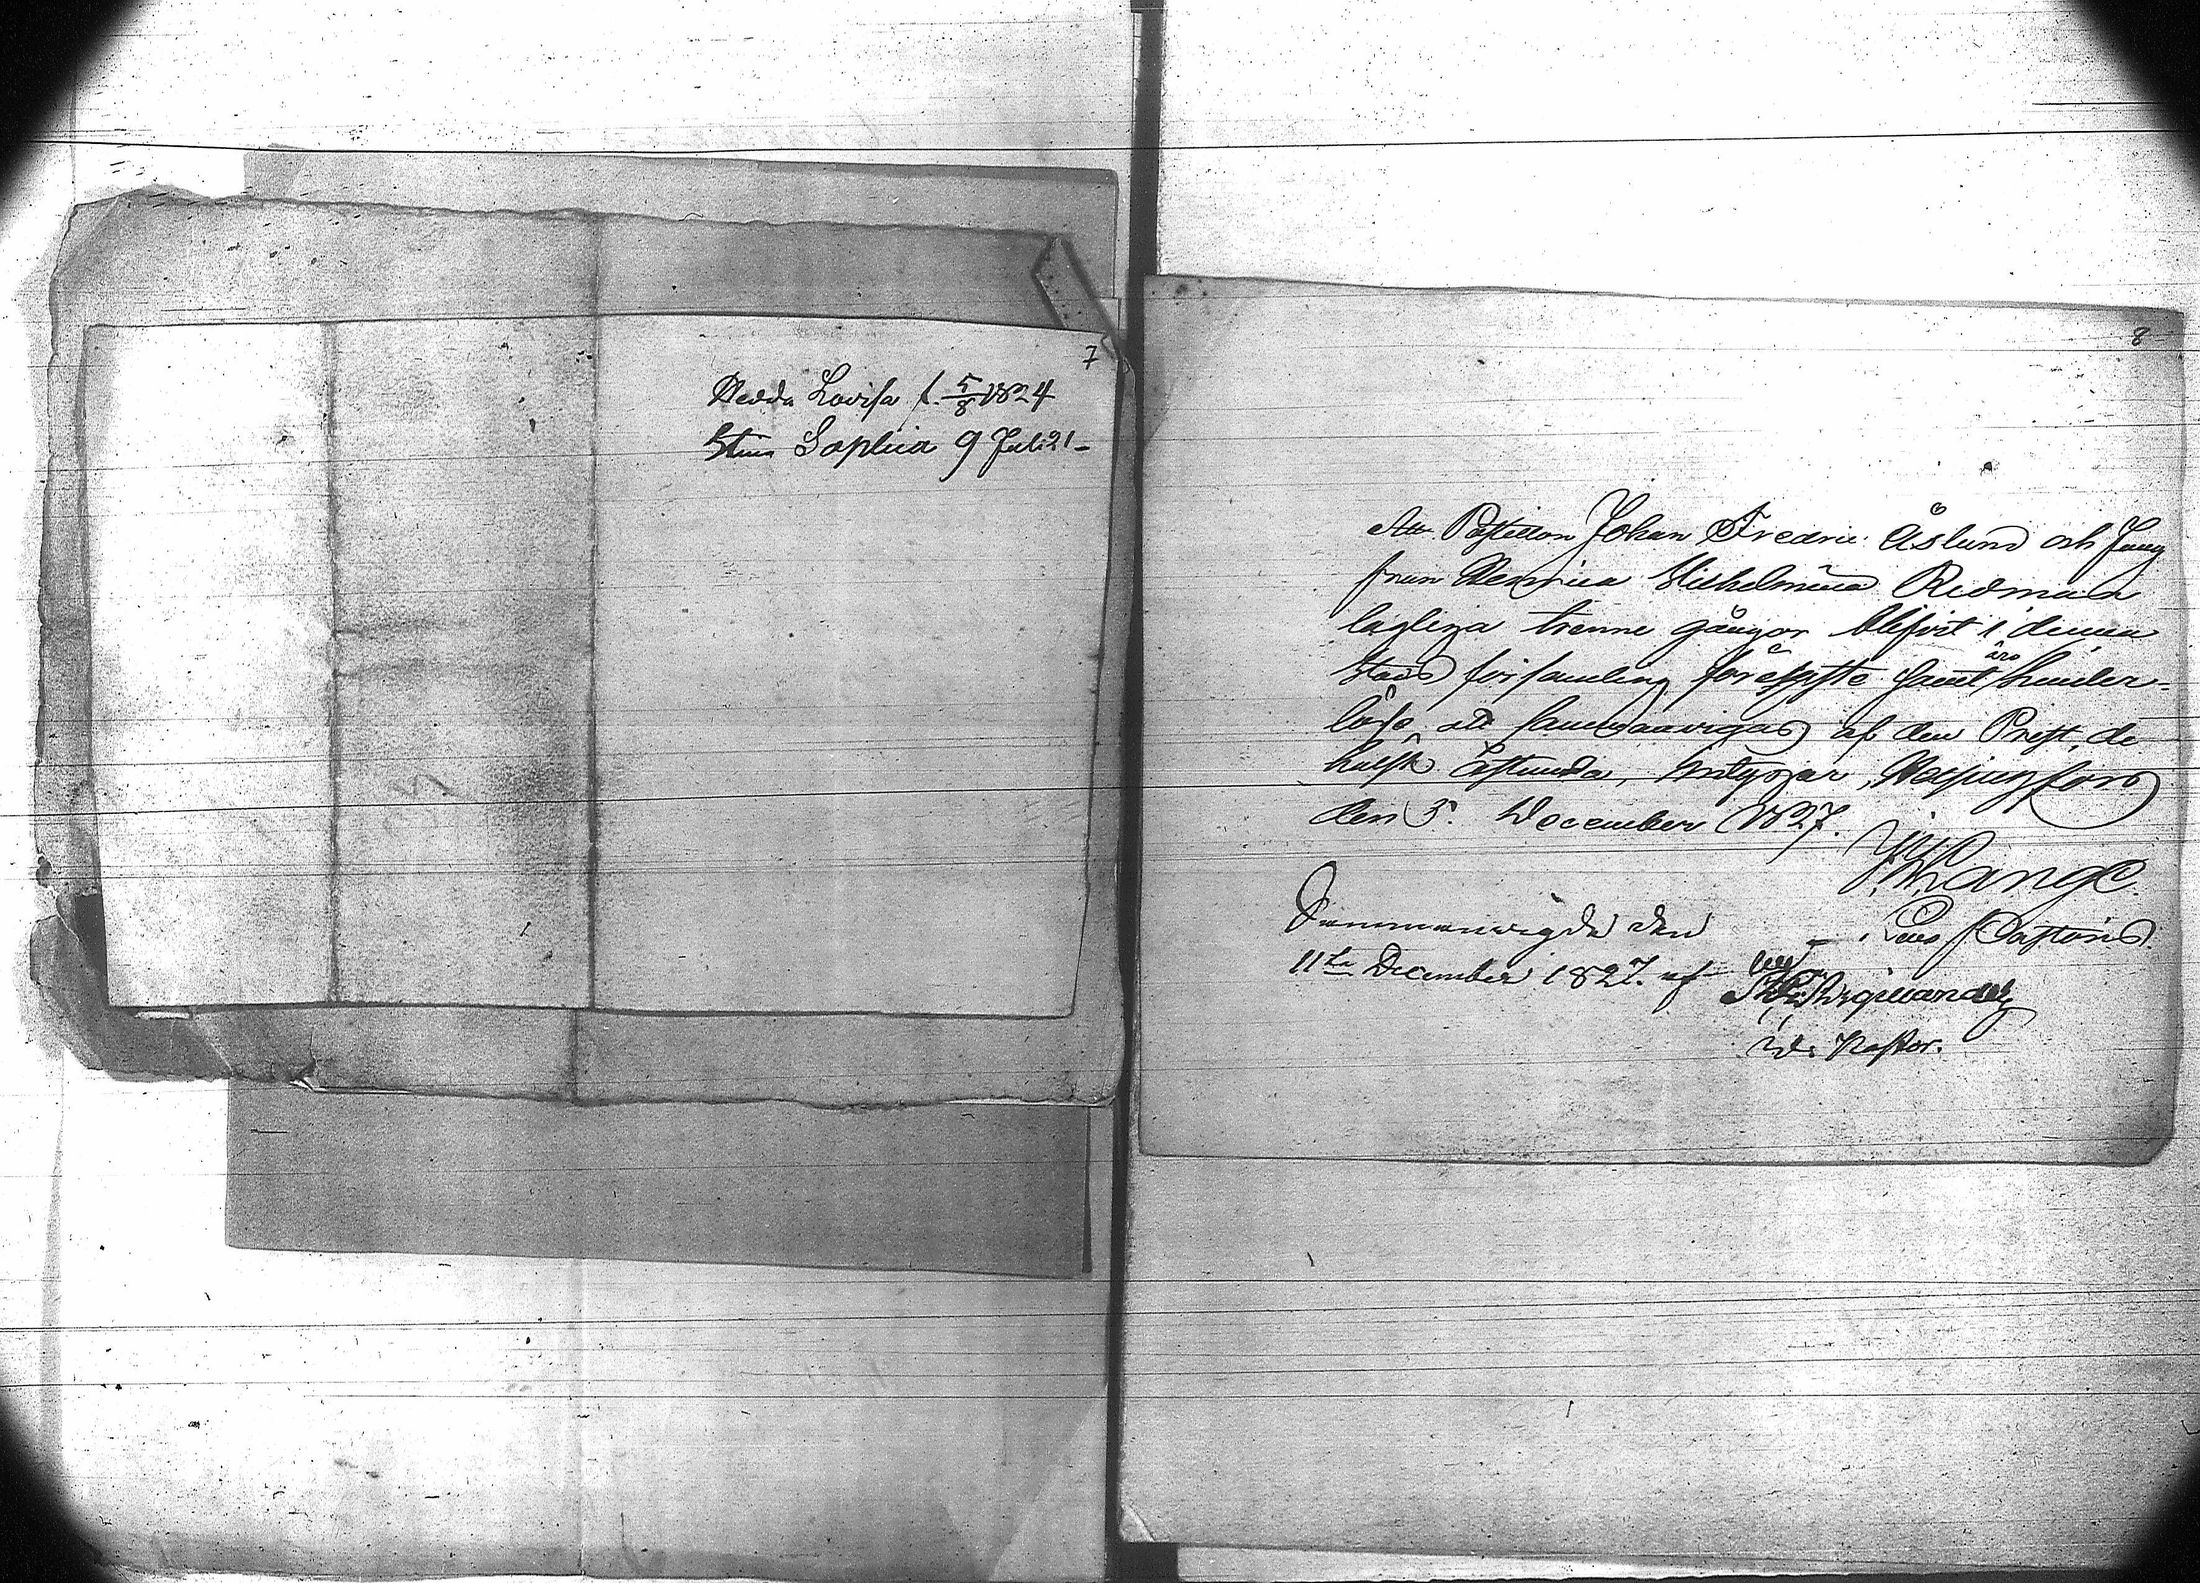 7
Hedda Lovisa f. 5/8 1824
Stina Sophia 9 Juli 21-
8
Att Postillon Johan Fredric Åslund och Jung
frun Henrica Wilhelmina Redman
lagliga trenne gångor blifvit i denna
Stads församling förelyste samt äro hinder-
löse att sammanvigas af den Prest, de
hälst åstunda, intygar, Helsingfors
den 5. December 1827.
Lange
Loco Pastoris.
Sammanvigde den
11te December 1827. af
V. Pastor.